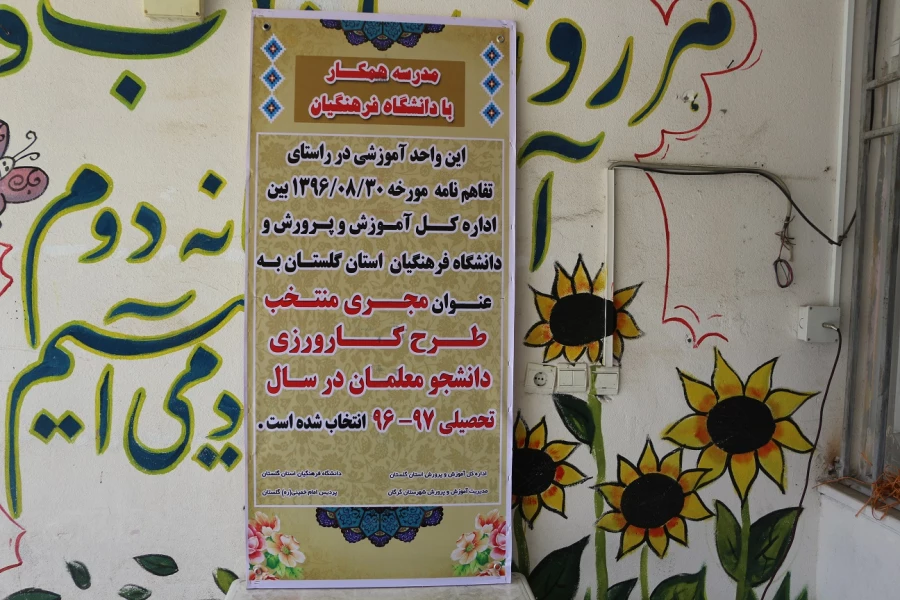 مدرسه همکار
با دانشگاه فرهنگیان
این واحد آموزشی در راستای
تفاهم نامه مورخه ۱۳۹۶/۰۸/۳۰ بین
اداره کل آموزش و پرورش و
دانشگاه فرهنگیان استان گلستان به
عنوان مجری منتخب
طرح کارورزی
دانشجو معلمان در سال
تحصیلی ۹۷-۹۶ انتخاب شده است.
اداره کل آموزش و پرورش استان گلستان
دانشگاه فرهنگیان استان گلستان
مدیریت آموزش و پرورش شهرستان گرگان
پردیس امام خمینی(ره) گلستان
انه دوم
آییم